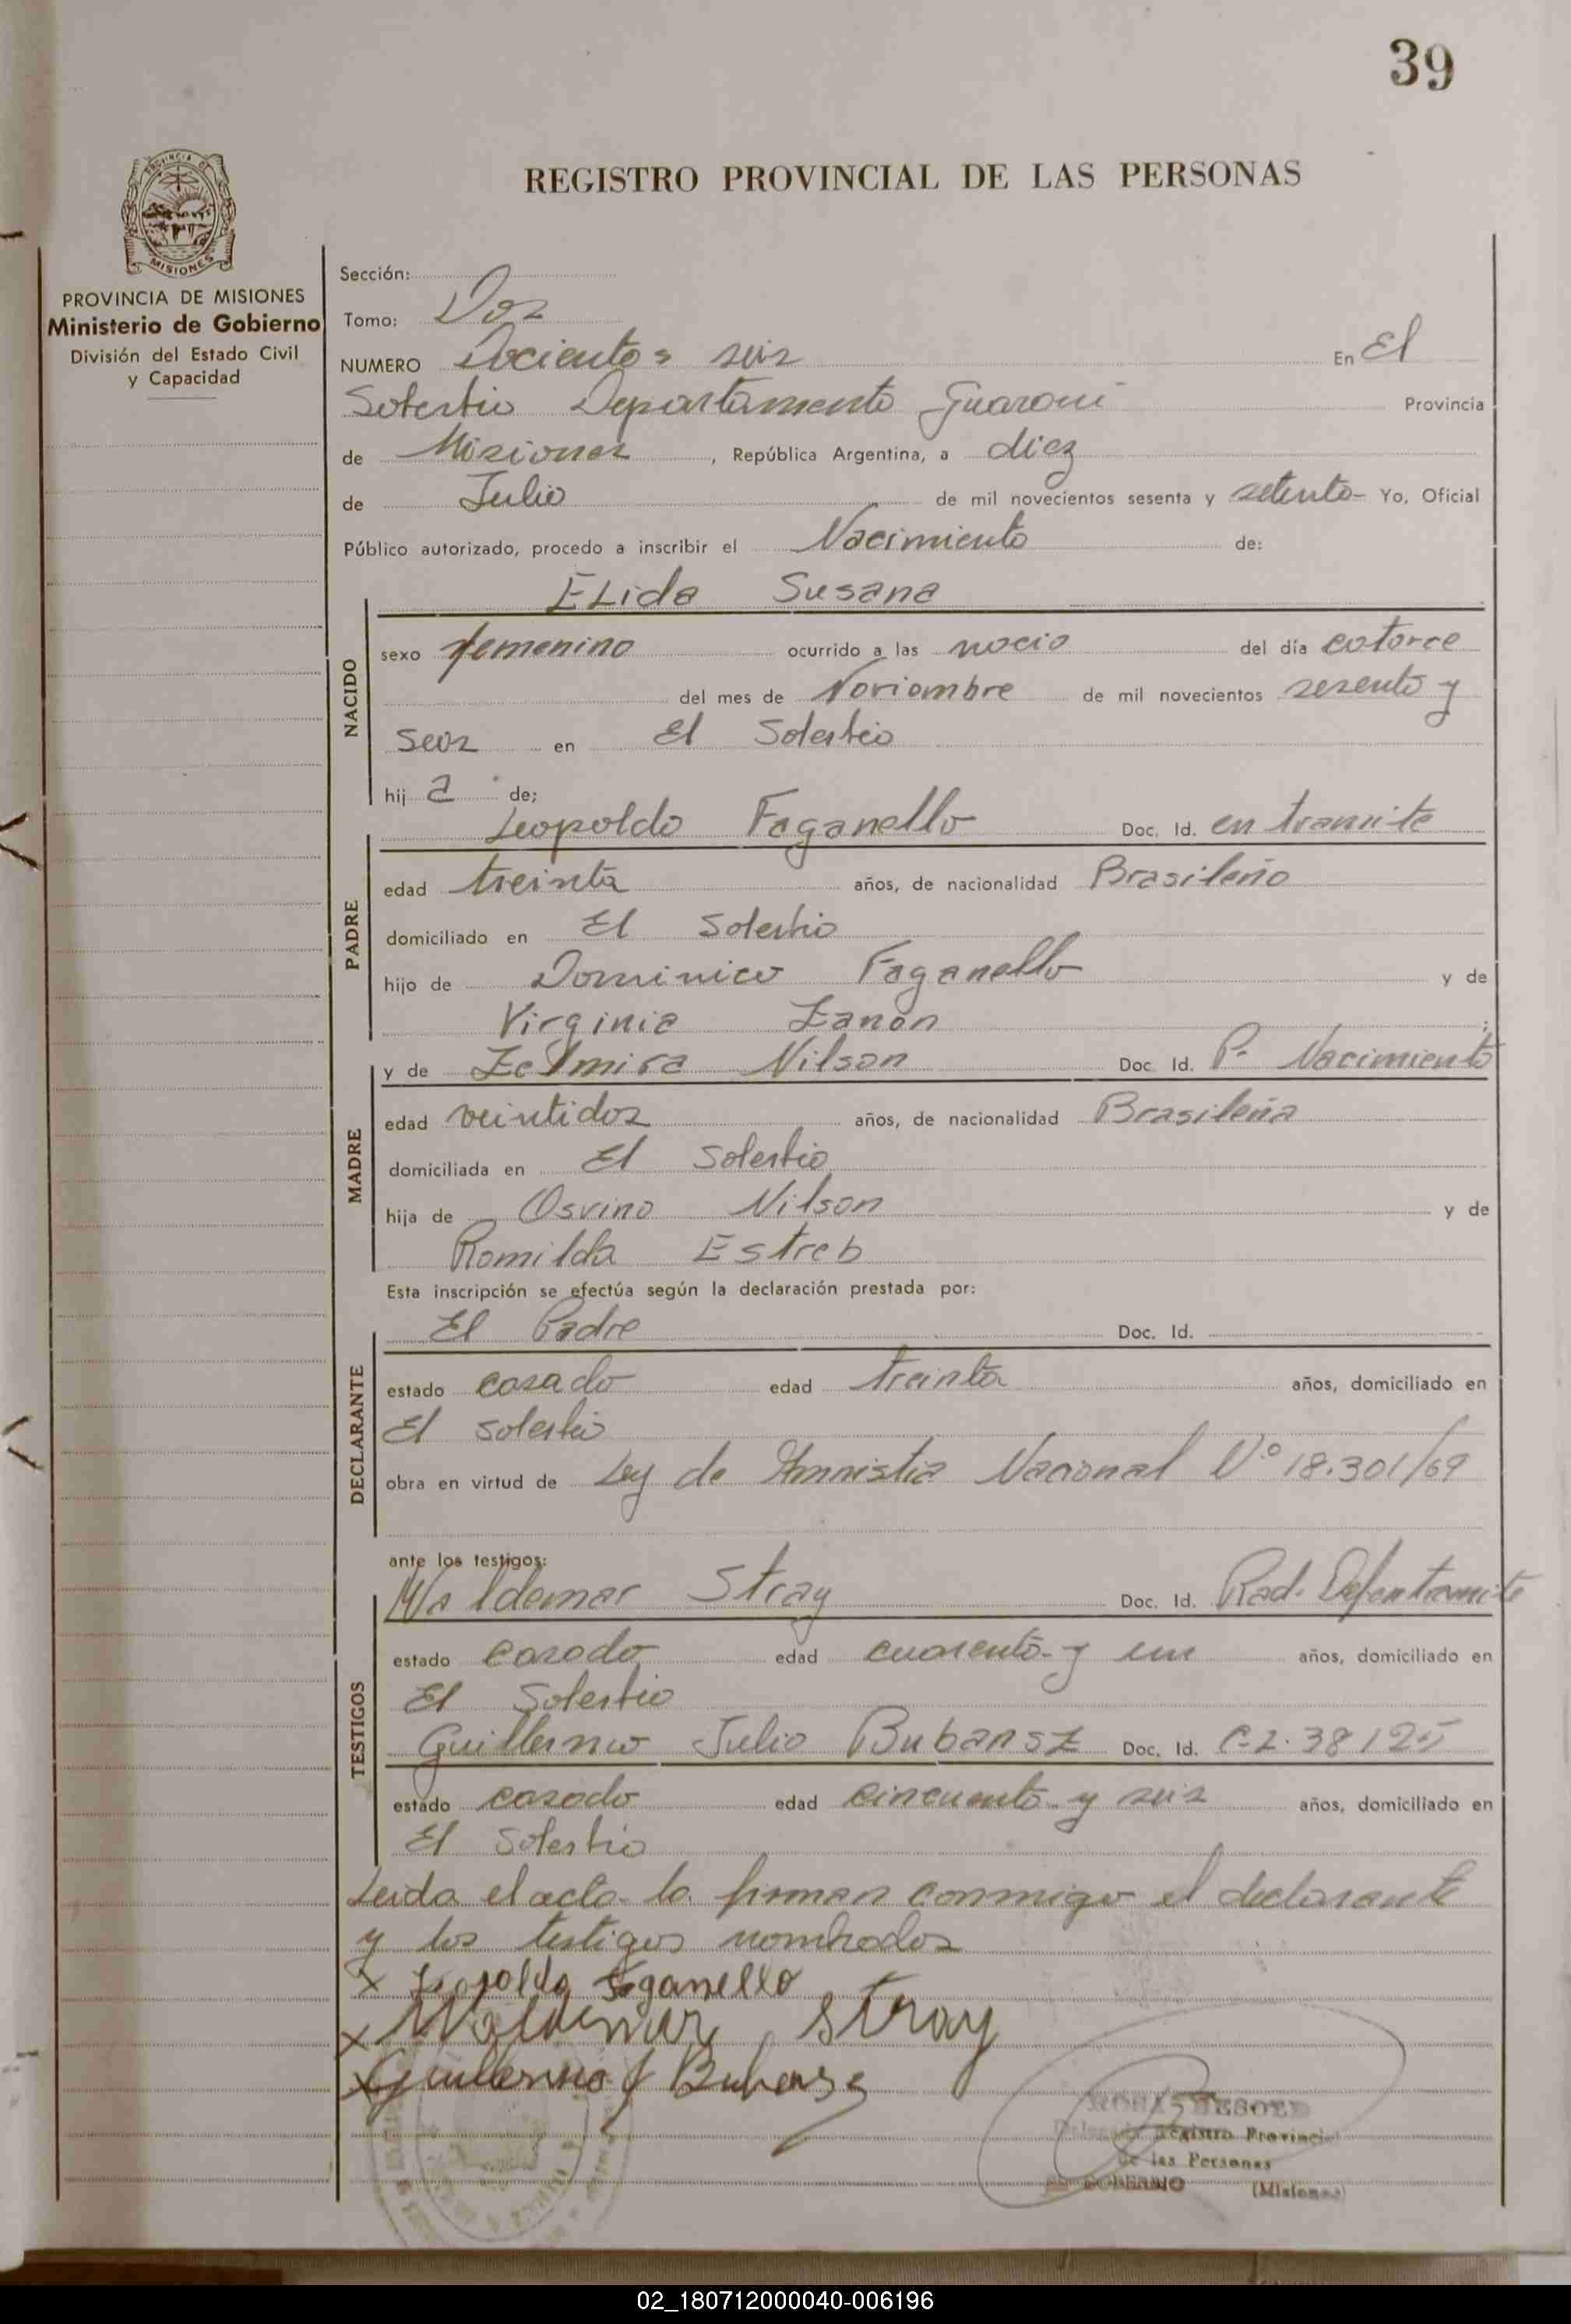 39
REGISTRO PROVINCIAL DE LAS PERSONAS
PROVINCIA DE MISIONES
PROVINCIA DE MISIONES
Ministerio de Gobierno
División del Estado Civil
y Capacidad
Sección:
Tomo: Dos
NUMERO Docientos seis En El
Soberbio Departamento Guarani Provincia
de Misiones, República Argentina, a diez
de Julio de mil novecientos sesenta y setenta- Yo, Oficial
Público autorizado, procedo a inscribir el Nacimiento de:
NACIDO
ELida Susana
sexo femenino ocurrido a las del día catorce
del mes de Noviembre de mil novecientos sesenta y
seis en El Soberbio
hij a de;
PADRE
Leopoldo Faganello Doc. Id. en tramite
edad treinta años, de nacionalidad Brasileño
domiciliado en El Soberbio
hijo de Dominico Faganello y de
Virginia Zanon ;
MADRE
y de Zelmira Nilson Doc. Id. P. Nacimiento
edad veintidos años, de nacionalidad Brasileña
domiciliada en El Soberbio
hija de Osvino Nilson y de
Romilda Estreb
Esta inscripción se efectúa según la declaración prestada por:
DECLARANTE
El Padre Doc. Id.
estado casado edad treinta años, domiciliado en
El Soberbio
obra en virtud de Ley de Amnistia Nacional N° 18.301/69
ante los testigos:
TESTIGOS
Waldemar Stray Doc. Id. Rad. Def en tramite
estado casado edad cuarenta y un años, domiciliado en
El Soberbio
Guillermo Julio Bubansz Doc. Id. C.I. 38125
estado casado edad cincuenta y seis años, domiciliado en
El Soberbio
Leida el acta la firman conmigo el declarante
y los testigos nombrados
x Leopoldo Faganello
x Waldemar Stray
x Guillermo J Bubansz
Registro Provincial
de las Personas
(Misiones)
02_180712000040-006196